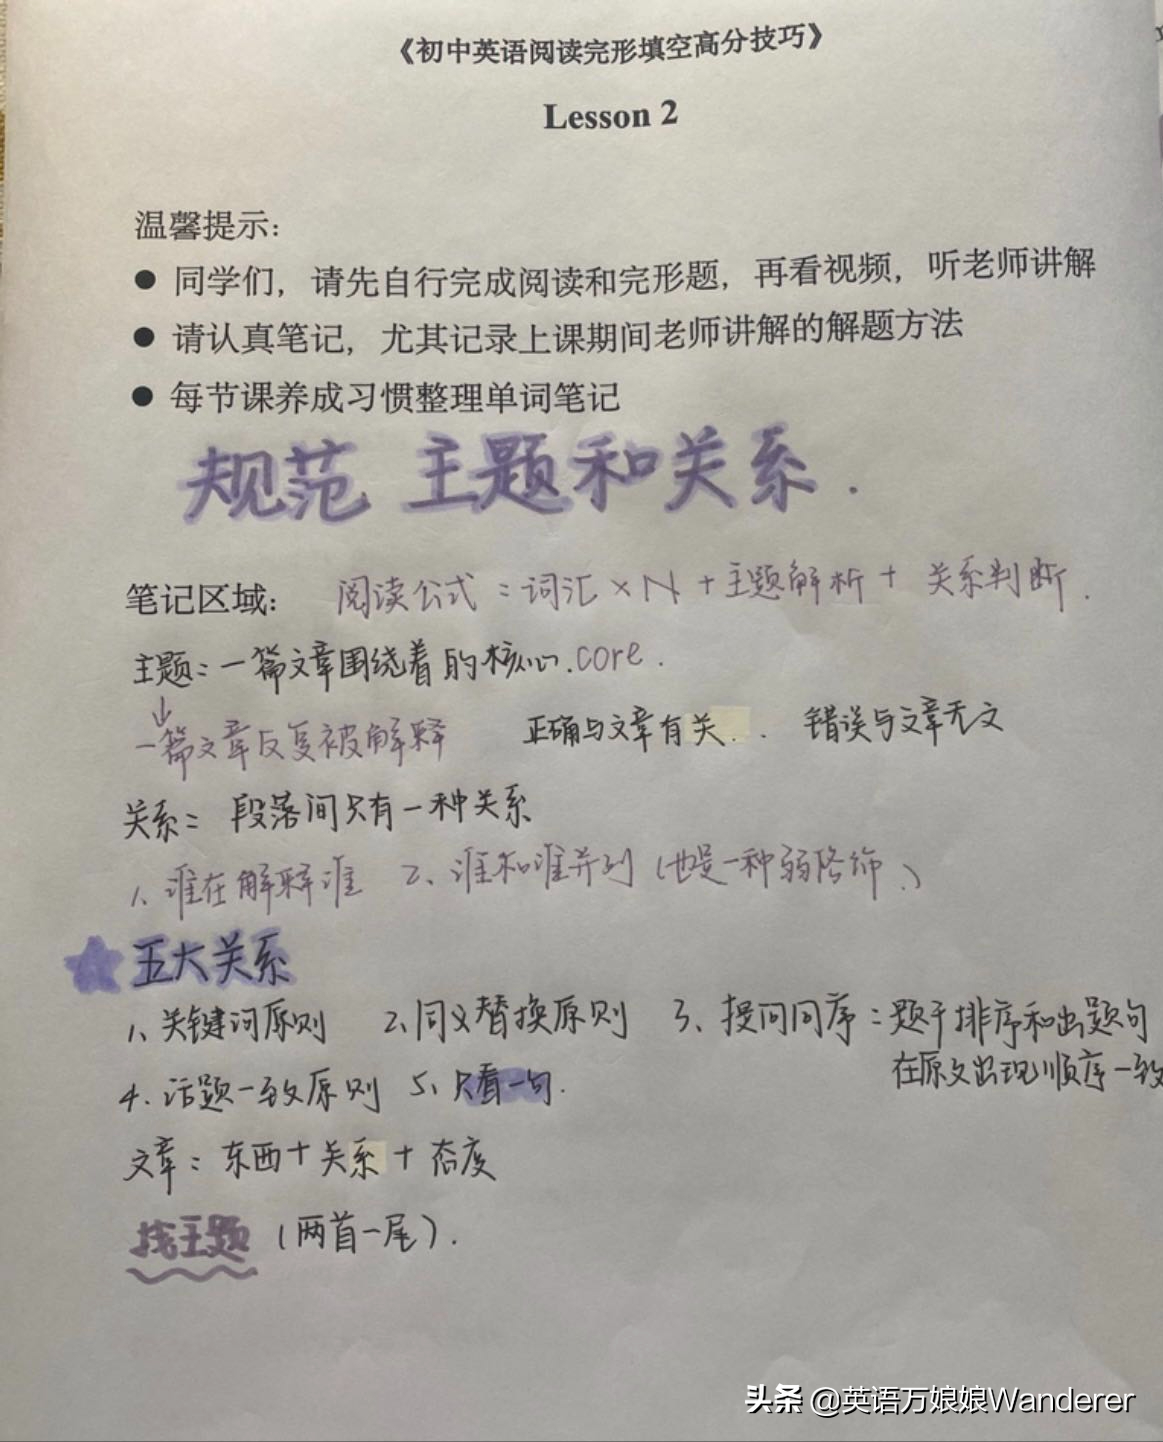 《初中英语阅读完形填空高分技巧》
Lesson 2
温馨提示：
● 同学们，请先自行完成阅读和完形题，再看视频，听老师讲解
● 请认真笔记，尤其记录上课期间老师讲解的解题方法
● 每节课养成习惯整理单词笔记
规范 主题和关系.
笔记区域： 阅读公式=词汇×N+主题解析+关系判断.
主题：一篇文章围绕着的核心.core.
↓
一篇文章反复被解释 正确与文章有关.. 错误与文章无文
关系= 段落间只有一种关系
1、谁在解释谁 2、谁和谁并列（也是一种弱修饰、）
★五大关系
1、关键词原则 2、同义替换原则 3、提问同序：题干排序和出题句
在原文出现顺序一致
4、话题一致原则 5、只看一句.
文章：东西+关系+态度
找主题（两首一尾）.
头条 @英语万娘娘Wanderer